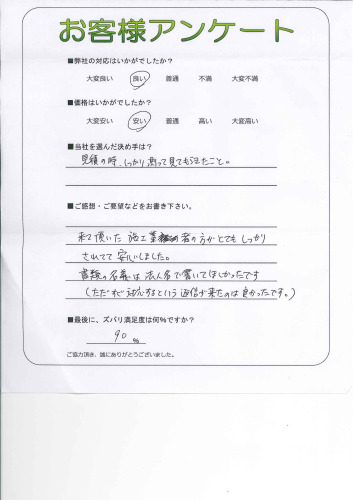 お客様アンケート
■弊社の対応はいかがでしたか?
大変良い 良い 普通 不満 大変不満
■価格はいかがでしたか?
大変安い 安い 普通 高い 大変高い
■当社を選んだ決め手は?
見積の時、しっかり測って見てもらえたこと。
■ご感想・ご要望などをお書き下さい。
来て頂いた 施工業者の方がとてもしっかり
されてて 安心しました。
書類の名義は 法人名で書いてほしかったです
(ただすぐ対応するという返信が来たのは良かったです。)
■最後に、ズバリ満足度は何%ですか?
90 %
ご協力頂き、誠にありがとうございました。